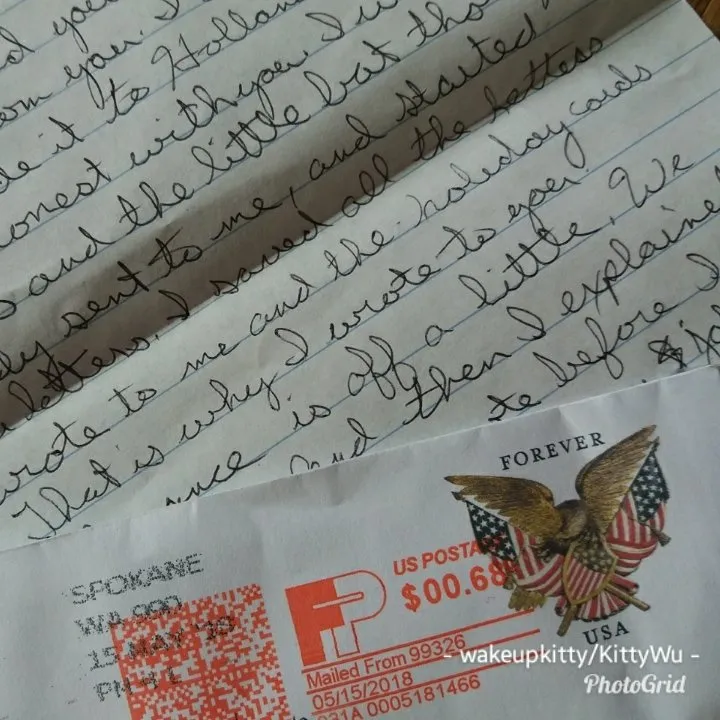 om you. I
de it to Holland
onest with you. I w
s and the little bit tho
dy sent to me, and started
letters. I saved all the letters
wrote to me and the holiday cards
That is why I wrote to you.
is off a little. We
and then I explained
te before I
FOREVER
USA
SPOKANE
WA 990
15 MAY '18
PM 4 L
FP
US POSTA
$00.68
Mailed From 99326
05/15/2018
031A 0005181466
- wakeupkitty/KittyWu -
PhotoGrid